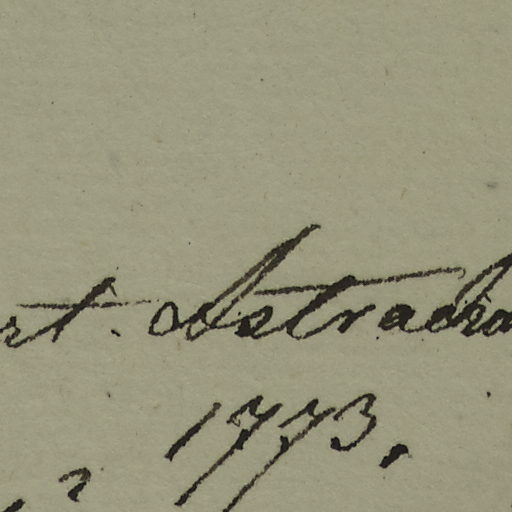 rt. Astracha
1773.